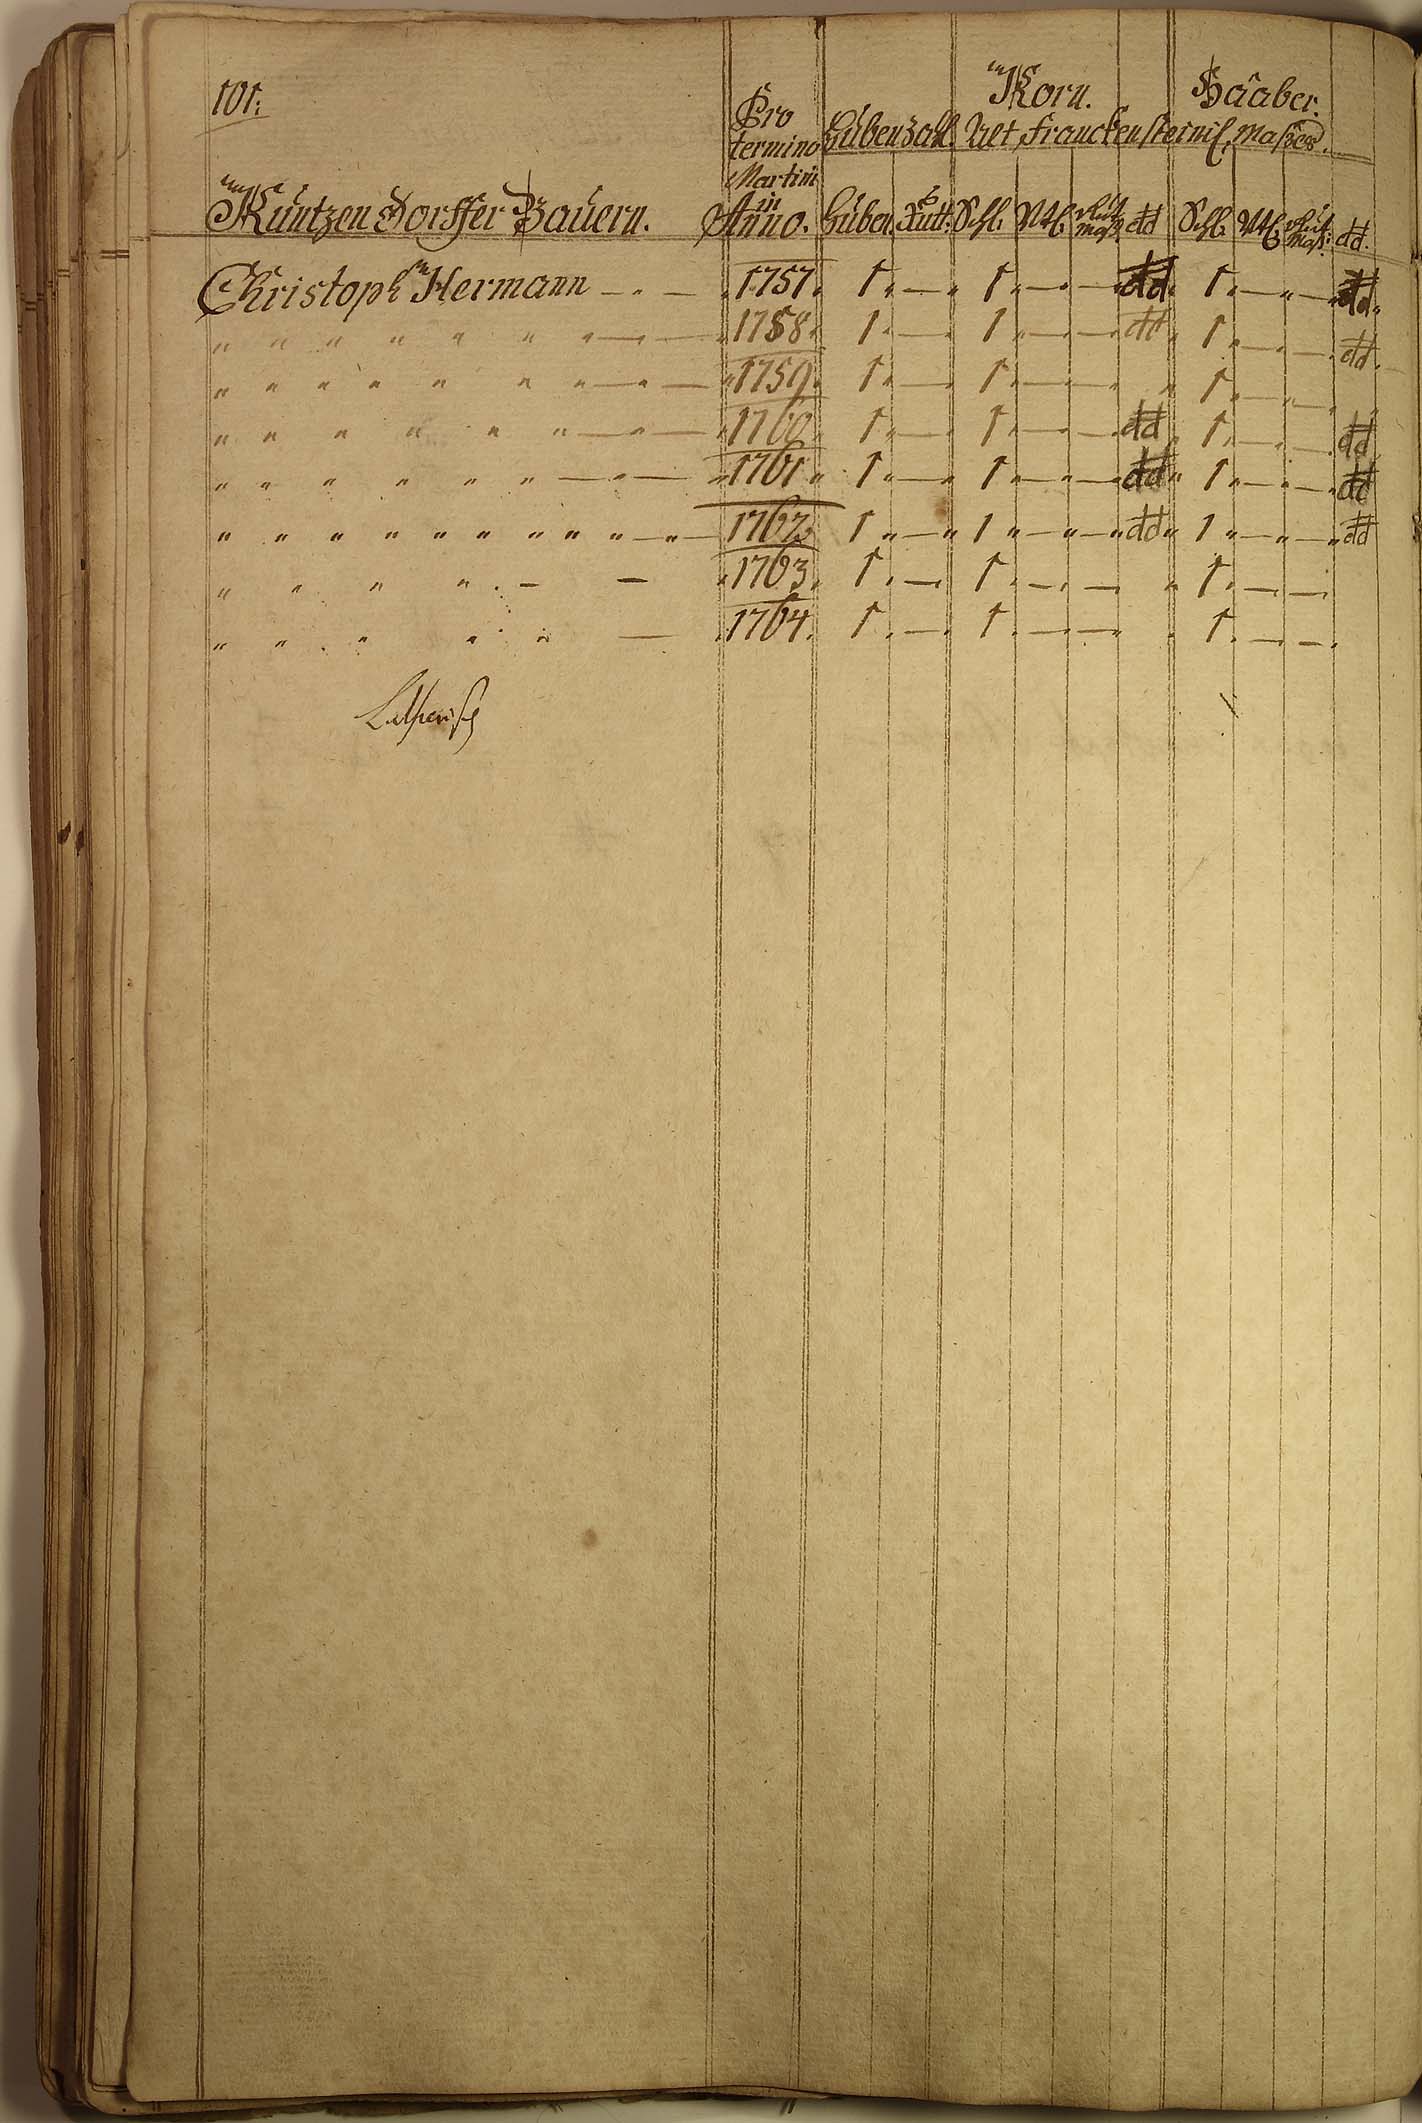 101:
Korn. Haaber.
Pro
termino Hubenzahl. Alt franckensteinis. Masses.
Martini
in
Kuntzendorffer Bauern. Anno. Huben. Rutt: Schl. Vtl. Mass. dd Schl. Vtl. Mass: dd.
Christoph Hermann — . — 1757. 1. — 1. — . — dd. 1. — „ — dd.
„ „ „ „ „ „ „ — . — 1758. 1. — 1. — . — dd. 1. — . — dd.
„ „ „ „ „ „ „ — . — 1759. 1. — 1. — . — „ 1. — „ — „
„ „ „ „ „ „ — . — 1760. 1. — 1. — . — dd. 1. — . — dd
„ „ „ „ „ „ — . — 1761 „ 1 „ — 1 „ — „ — dd „ 1 „ — „ — dd
„ „ „ „ „ „ „ „ „ „ — „ — 1762 1 „ — „ 1 „ — „ — „ dd „ 1 „ — „ — „ dd
„ „ „ „ . — — 1763. 1. — 1. — . — „ 1. — . —
„ „ . „ „ „ — 1764. 1. — 1. — — . 1. — . — .
Lutherisch